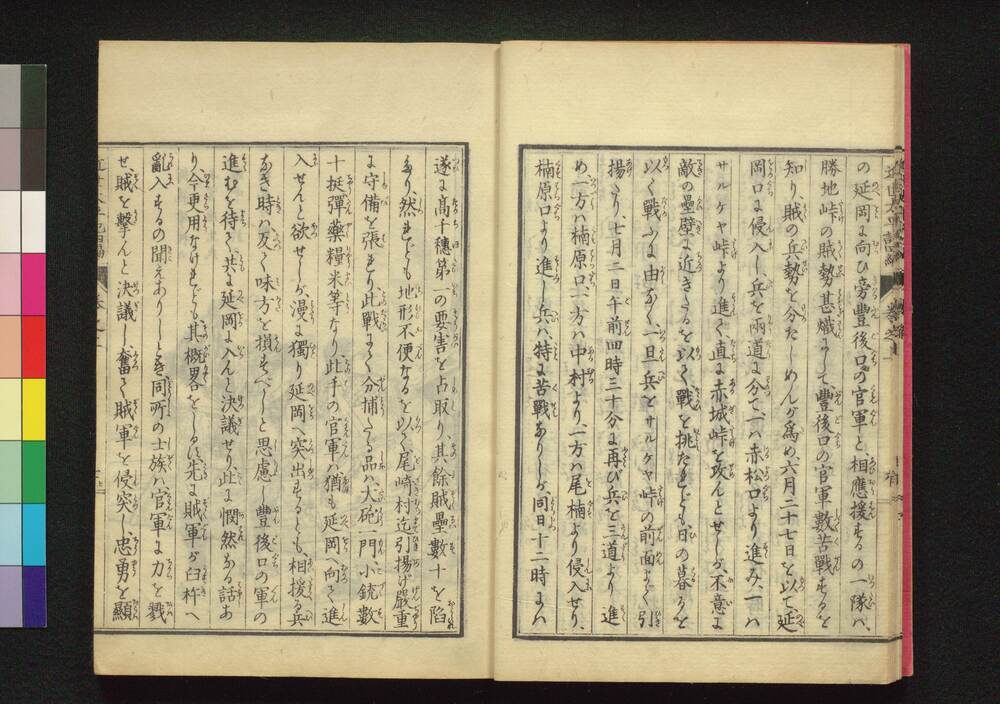 の延岡に向ひ旁豊後口の官軍と相應援するの一隊ハ、
勝地峠の賊勢甚熾にして豊後口の官軍數苦戰するを
知り賊の兵勢を分たしめんが爲め六月二十七日を以て延
岡口に侵入し、兵を兩道に分て、一ハ赤松口より進み、一ハ
サルケヤ峠より進て直に赤城峠を攻んとせしが、不意に
敵の壘壁に近きたるを以て戰を挑たれども、日の暮るを
以て戰ふに由なく、一旦兵をサルケヤ峠の前面まで引
揚たり、七月二日午前四時三十分に再び兵を三道より進
め一方ハ楠原口、一方ハ中村より、一方ハ尾楠より侵入せり、
楠原口より進し兵ハ、特に苦戰ありしが、同日十二時にハ
遂に高千穗第一の要害を占取り、其餘賊壘數十を陷
たり、然れども地形不便なるを以て尾崎村迄引揚げ嚴重
に守備を張れり、此戰にて分捕たる品ハ、大砲一門小銃數
十挺彈藥糧米等なり、此手の官軍ハ猶も延岡へ向て進
入せんと欲せしが漫に獨り延岡へ突出するとも、相援る兵
なき時ハ反て味方を損すべしと思慮し豊後口の軍の
進むを待て、共に延岡に入んと決議せり、此に憫然なる話あ
り今更用なけれども、其概畧をしるす先に賊軍が臼杵へ
亂入するの聞えありしとき同所の士族ハ官軍に力を戮
せ賊を擊んと決議し、奮て賊軍を侵突し忠勇を顯